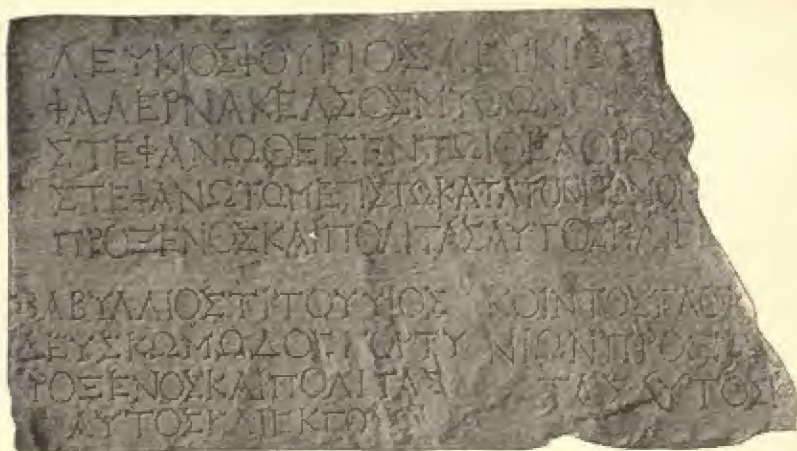 ΛΕΥΚΙΟΣΦΟΥΡΙΟΣΛΕΥΚΙΟΥ
ΦΑΛΕΡΝΑΚΕΛΣΟΣ
ΣΤΕΦΑΝΩΘΕΙΣΕΝΤΩΙΘΕΑΤΡΩ
ΣΤΕΦΑΝΩΤΩΜΕΓΙΣΤΩΚΑΤΑΤΟΝΝΟΜΟΝ
ΠΡΟΞΕΝΟΣΚΑΙΠΟΛΙΤΑΣΑΥΤΟΣΚΑΙ
ΒΑΒΥΛΛΙΟΣΤΙΤΟΥΥΙΟΣ ΚΟΙΝΤΟΣ
ΚΩΜΩΔΟΣΓΟΡΤΥ ΝΙΩΝΠΡΟ
ΡΟΞΕΝΟΣΚΑΙΠΟΛΙΤΑΣ ΑΥΤΟΣ
ΑΥΤΟΣΚΑΙΕΚΓΟ